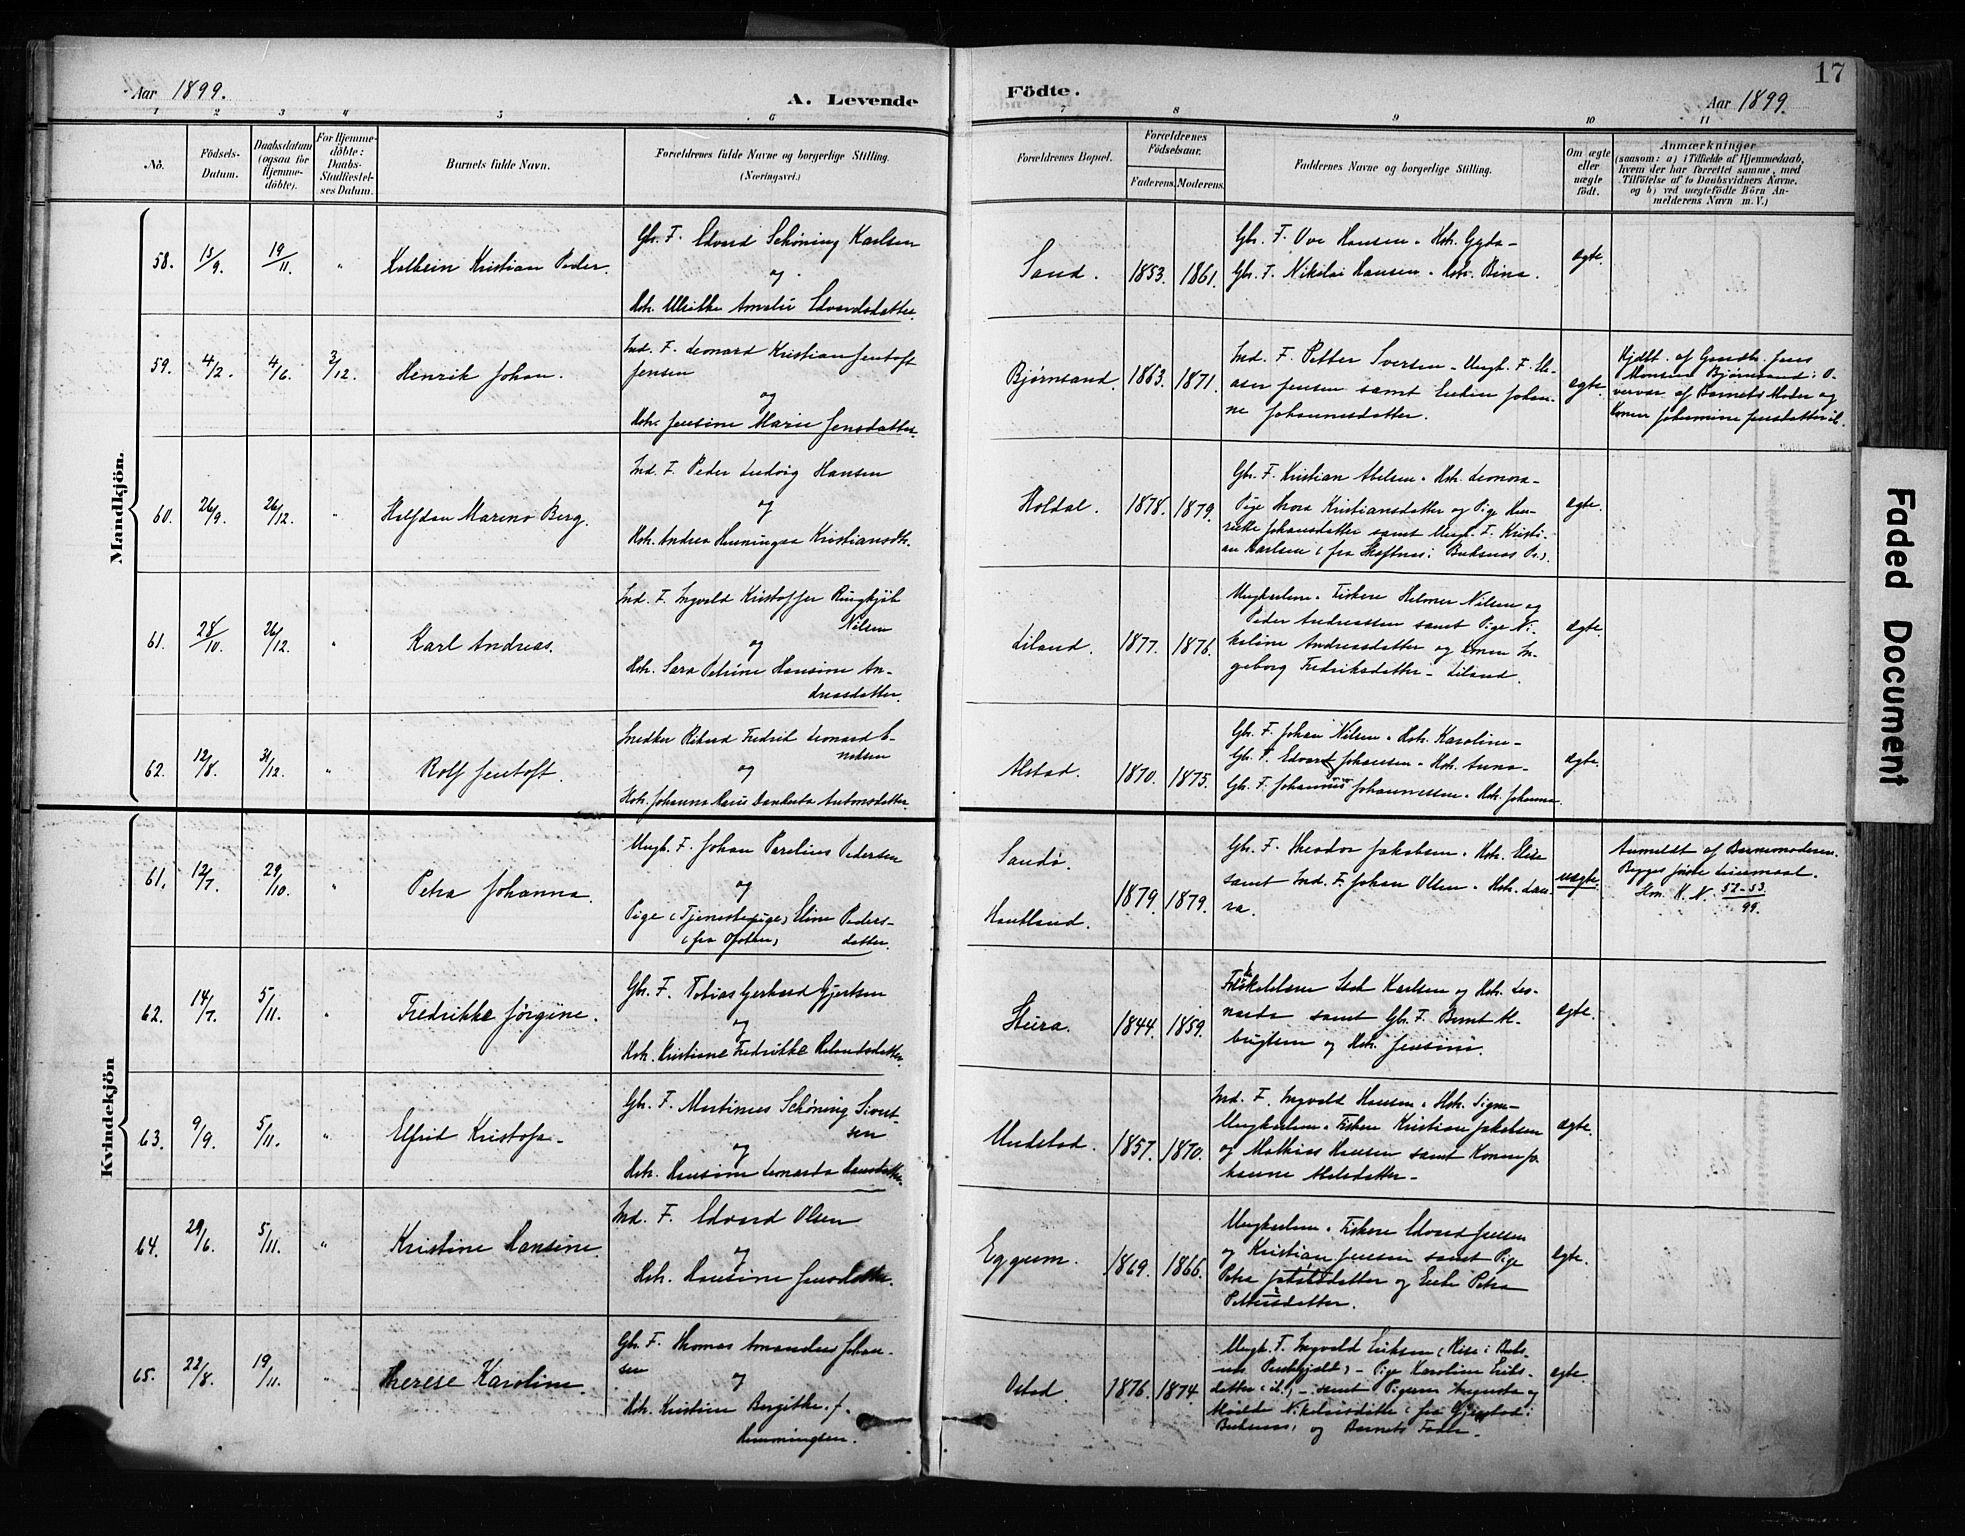 17
Aar 1899.
A. Levende
Födte.
Aar 1899.
1 2 3 4 5 6 7 8 9 10 11
No.
Födsels-
Datum.
Daabsdatum
(ogsaa for
Hjemme-
döbte).
For Hjemme-
döbte:
Daabs-
Stadfæstel-
ses Datum.
Barnets fulde Navn.
Forældrenes fulde Navne og borgerlige Stilling.
(Næringsvei.)
Forældrenes Bopæl.
Forældrenes
Födselsaar.
Faderens.
Moderens.
Faddernes Navne og borgerlige Stilling.
Om ægte
eller
uægte
födt.
Anmærkninger
(saasom: a) i Tilfælde af Hjemmedaab,
hvem der har forrettet samme, med
Tilföielse af to Daabsvidners Navne,
og b) ved uægtefödte Börn An-
melderens Navn m. V.)
Mandkjön.
58. 13/9. 19/11. " Kolbein Kristian Peder.
Gbr. F. Edvard Schöning Karlsen
og
Hstr. Ulrikke Amalie Edvardsdatter.
Sand. 1853. 1861.
Gbr. F. Ove Hansen. Hstr. Gyda-
Gbr. F. Nikolai Hansen. Hstr. Bina.
ægte.
59. 4/2. 4/6. 3/12. Henrik Johan.
Ind. F. Leonard Kristian Jentoft
Jensen
og
Hstr. Jensine Marie Jensdatter.
Bjørnsand. 1863. 1871.
Ind. F. Petter Sversen - Ungk. F. El-
aser Jensen samt Enken Johan-
ne Johannesdatter.
ægte.
Hjdbt. af Gmdbr. Jens
Monsen Bjørnsand i O-
vervær af Barnets Moder og
Konen Johannine Jensdatter ib.
60. 26/9. 26/12. " Halfdan Marino Berg.
Ind. F. Peder Ludvig Hansen
og
Hstr. Andrea Henninga Kristiansdtr.
Holdal. 1878. 1879.
Gbr. F. Kristian Abelsen. Hstr. Leonora-
Pige Thora Kristiansdatter og Pige Hen-
rikke Johansdatter samt Ungk. F. Kristi-
an Karlsen (fra Skaftnes i Buksnes Pr.).
ægte.
61. 28/10. 26/12. " Karl Andreas.
Ind. F. Ingvald Kristoffer Ringkjöb
Nilsen
og
Hstr. Sara Petrine Hansine An-
dreasdatter.
Liland. 1877. 1876.
Ungkarlene. Fiskere Helmer Nilsen og
Peder Andreassen samt Pige Ni-
koline Andreasdatter og Konen In-
geborg Fredriksdatter - Liland.
ægte.
62. 12/8. 31/12. " Rolf Jentoft.
Snedker Rikard Fredrik Leonard E-
noksen
og
Hstr. Johanna Marie Danberta Antonsdatter.
Alstad. 1870. 1875.
Gbr. F. Johan Nilsen. Hstr. Karoline-
Gbr. F. Edvard Johansen. Hstr. Anna-
Gbr. F. Johannes Johannessen. Hstr. Johanna.
ægte.
Kvindekjön
61. 12/7. 29/10. " Petra Johanna.
Ungk. F. Johan Parelius Pedersen
og
Pige (Tjenestepige) Eline Peders-
(fra Ofoten) datter.
Sandø.
Hautland. 1879. 1879.
Gbr. F. Theodor Jakobsen. Hstr. Elise
samt Ind. F. Johan Olsen. Hstr. Lau-
ra.
uægte.
Anmeldt af Barnemoderen.
Begges første Leiermaal.
Hm. K. N. 52-53/99.
62. 14/7. 5/11. " Fredrikke Jørgine.
Gbr. F. Tobias Gerhard Gjertsen
og
Hstr. Kristiane Fredrikke Rolandsdatter.
Steira. 1844. 1859.
samt Gbr. F. Bernt Al-
brigtsen og Hstr. Jensine.
ægte.
63. 9/9. 5/11. " Elfrid Kristofa-
Gbr. F. Martinus Schöning Sivert-
sen
og
Hstr. Hansine Leonarda Hansdatter.
Unstad. 1857. 1870.
Ind. F. Ingvald Hansen. Hstr. Signe-
Ungkarlene. Fiskere Kristian Jakobsen
og Mathias Hansen samt Konen Jo-
hanne Abelsdatter-
ægte.
64. 29/6. 5/11. " Kristine Hansine.
Ind. F. Edvard Olsen
og
Hstr. Hansine Jensdatter.
Eggum. 1869. 1866.
Ungkarlene. Fiskere Edvard Jensen
og Kristian Jensen samt Pige
Petra Jakobsdatter og Enke Petra
Pettersdatter.
ægte.
65. 22/8. 19/11. " Therese Karoline.
Gbr. F. Thomas Amandus Johan-
sen
og
Hstr. Kristine Bergitte. f.
Henningsen.
Ostad. 1876. 1874.
Ungk. F. Ingvald Eriksen (Rise i Buks-
nes Prestegjeld) - Pige Karoline Eriks-
datter (ib.) - samt Pigerne Augusta og
Matilde Nikolaisdatter (fra Gjerstad i
Buksnes) og Barnets Fader.
ægte.
Faded Document